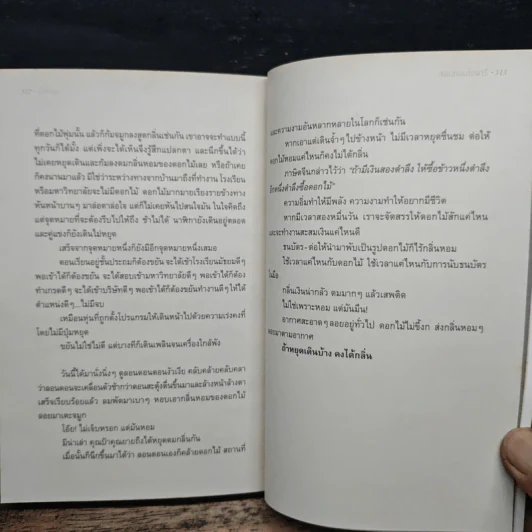 ที่ดอกไม้พุ่มนั้น แล้วก็ก้มจมูกลงสูดกลิ่นเช่นกัน เขาอาจจะทำแบบนี้
ทุกวันก็ได้มั้ง แต่เพิ่งจะได้เห็นจึงรู้สึกแปลกตา และนึกขึ้นได้ว่า
ไม่เคยหยุดเดินและก้มลงดมกลิ่นหอมของดอกไม้เลย หรือถ้าเคย
ก็คงนานมาแล้ว มิใช่ว่าระหว่างทางจากบ้านมาถึงที่ทำงาน โรงเรียน
หรือมหาวิทยาลัยจะไม่มีดอกไม้ ดอกไม้มากมายเรียงรายข้างทาง
หันหน้าบานๆ มาล่อตาล่อใจ แต่ก็ไม่เคยหันไปสนใจมัน ในใจคิดถึง
แต่จุดหมายที่จะต้องรีบไปให้ถึง ช้าไม่ได้ นาฬิกายังเดินอยู่ตลอด
และคู่แข่งก็ยังเดินไม่หยุด
เสร็จจากจุดหมายหนึ่งก็ยังมีอีกจุดหมายหนึ่งเสมอ
ตอนเรียนอยู่ชั้นประถมก็ต้องขยัน จะได้เข้าโรงเรียนมัธยมดีๆ
พอเข้าได้ก็ต้องขยัน จะได้สอบเข้ามหาวิทยาลัยดีๆ พอเข้าได้ก็ต้อง
ทำเกรดดีๆ จะได้เข้าบริษัทดีๆ พอเข้าได้ก็ต้องขยันทำงานดีๆ ให้ได้
ตำแหน่งดีๆ...ไม่มีจบ
เหมือนหุ่นที่ถูกตั้งโปรแกรมให้เดินหน้าไปด้วยความเร่งคงที่
โดยไม่มีปุ่มหยุด
ขยันไม่ใช่ไม่ดี แต่บางทีก็เดินเพลินจนเครื่องใกล้พัง
วันนี้ได้มานั่งนิ่งๆ ดูลอนดอนตอนงัวเงีย คลับคล้ายคลับคลา
ว่าลอนดอนจะเคลื่อนตัวช้ากว่าตอนสะดุ้งตื่นขึ้นมาและล้างหน้าล้างตา
เสร็จเรียบร้อยแล้ว ลมพัดมาเบาๆ หอบเอากลิ่นหอมของดอกไม้
ลอยมาแตะจมูก
โอ๊ย! ไม่เจ็บหรอก แต่มันหอม
มิน่าเล่า คุณป้าคุณยายถึงได้หยุดดมกลิ่นกัน
เมื่อนั้นก็นึกขึ้นมาได้ว่า ลอนดอนเองก็คล้ายดอกไม้ สถานที่
และความงามอันหลากหลายในโลกก็เช่นกัน
หากเอาแต่เดินจ้ำๆ ไปข้างหน้า ไม่มีเวลาหยุดชื่นชม ต่อให้
ดอกไม้หอมแค่ไหนก็คงไม่ได้กลิ่น
ภาษิตจีนกล่าวไว้ว่า "ถ้ามีเงินสองตำลึง ให้ซื้อข้าวหนึ่งตำลึง
อีกหนึ่งตำลึงซื้อดอกไม้"
ความอิ่มทำให้มีพลัง ความงามทำให้อยากมีชีวิต
หากมีเวลาสองหมื่นวัน เราจะจัดสรรให้ดอกไม้สักแค่ไหน
และจะทำงานสะสมเงินแค่ไหนดี
ธนบัตร-ต่อให้นำมาพับเป็นรูปดอกไม้ก็ไร้กลิ่นหอม
ใช้เวลาแค่ไหนกับดอกไม้ ใช้เวลาแค่ไหนกับการนับธนบัตร
ดี
กลิ่นเงินน่ากลัว ดมมากๆ แล้วเสพติด
ไม่ใช่เพราะหอม แต่มันมึน!
อากาศสะอาดๆ ลอยอยู่ทั่วไป ดอกไม้ไม่ขี้งก ส่งกลิ่นหอมๆ
ออกมาตามอากาศ
ถ้าหยุดเดินบ้าง คงได้กลิ่น